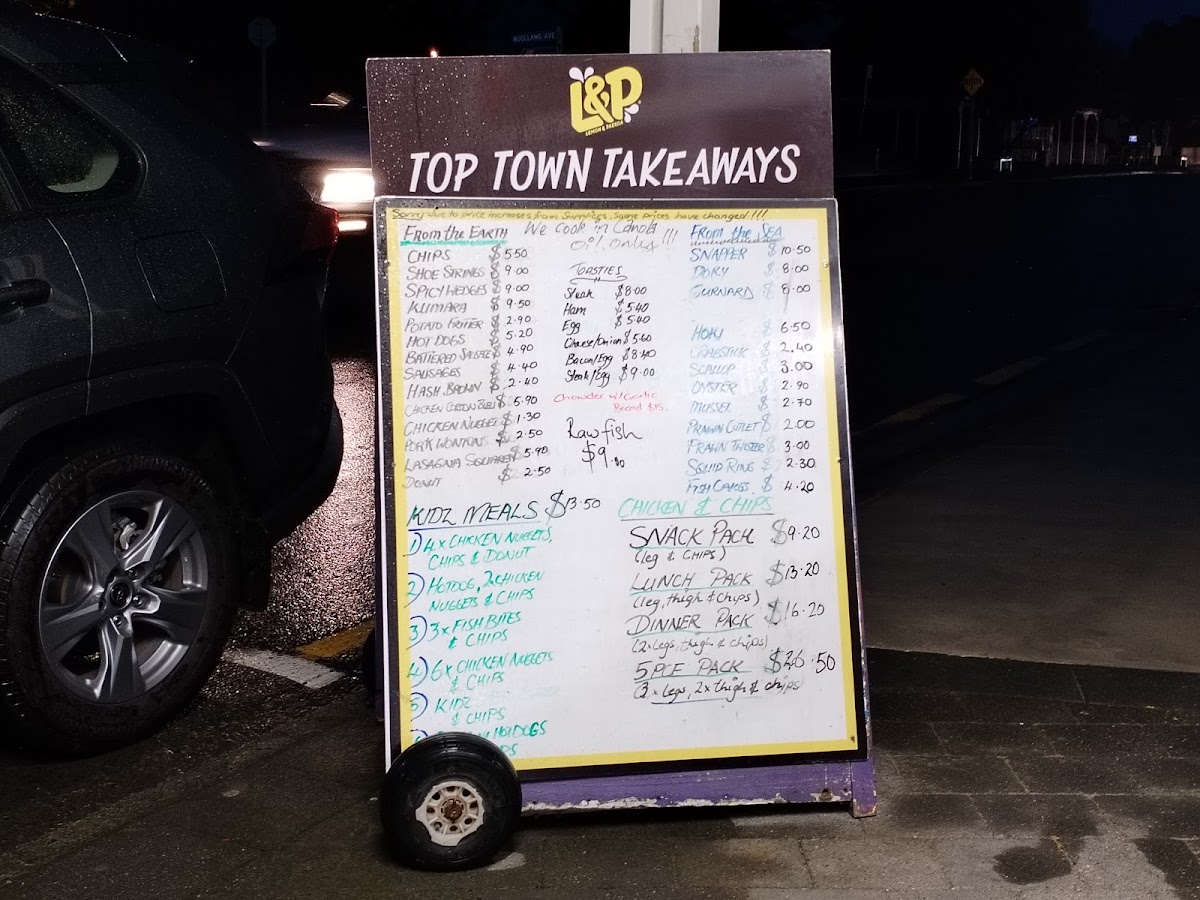 WOOLLAMS AVE
L&P
LEMON & PAEROA
TOP TOWN TAKEAWAYS
Sorry due to price increases from Suppliers, some prices have changed!!!
We Cook in Canola
Oil only!!!
From the Earth
CHIPS $5.50
SHOE STRINGS $9.00
SPICY WEDGES $9.00
KUMARA $9.50
POTATO FRITTER $2.90
HOT DOGS $5.20
BATTERED SAUSAGE $4.90
SAUSAGES $4.40
HASH BROWN $2.40
CHICKEN CORDON BLEU $5.90
CHICKEN NUGGET $1.30
PORK WONTONS $2.50
LASAGNA SQUARE $5.90
DONUT $2.50
TOASTIES
Steak $8.00
Ham $5.40
Egg $5.40
Cheese/Onion $5.60
Bacon/Egg $8.40
Steak/Egg $9.00
Chowder w/Garlic
Bread $15.
Raw fish
$9.00
From the Sea
SNAPPER $10.50
DORY $8.00
GURNARD $8.00
HOKI $6.50
CRABSTICK $2.40
SCALLOP $3.00
OYSTER $2.90
MUSSEL $2.70
PRAWN CUTLET $2.00
PRAWN TWISTER $3.00
SQUID RING $2.30
FISH CAKES $4.20
KIDZ MEALS $13.50
1) 4x CHICKEN NUGGETS,
CHIPS & DONUT
2) HOTDOG, 2x CHICKEN
NUGGETS & CHIPS
3) 3x FISH BITES
& CHIPS
4) 6x CHICKEN NUGGETS
& CHIPS
5) KIDZ
& CHIPS
HOTDOGS
CHICKEN & CHIPS
SNACK PACK $9.20
(leg & CHIPS)
LUNCH PACK $13.20
(leg, thigh & chips)
DINNER PACK $16.20
(2x legs, thigh & chips)
5PCE PACK $26.50
(3x legs, 2x thigh & chips)